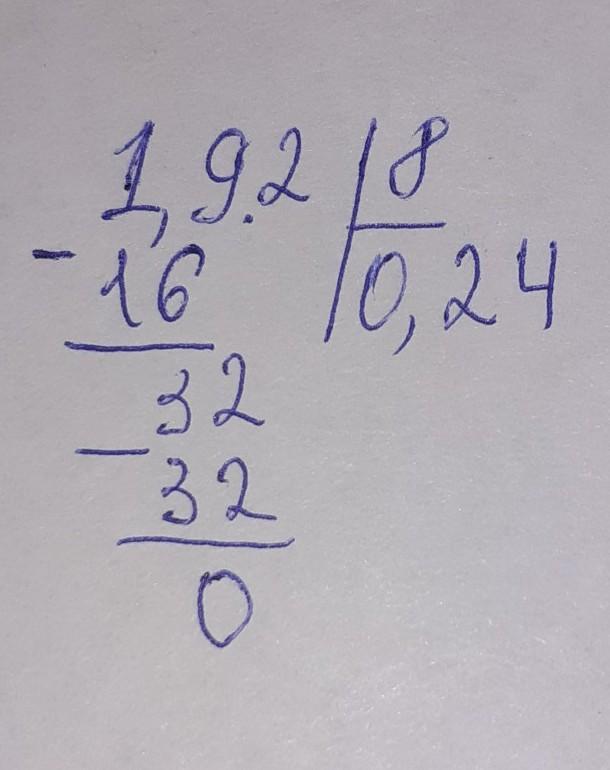 1,9.2 | 8
- 16 | 0,24
32
- 32
0